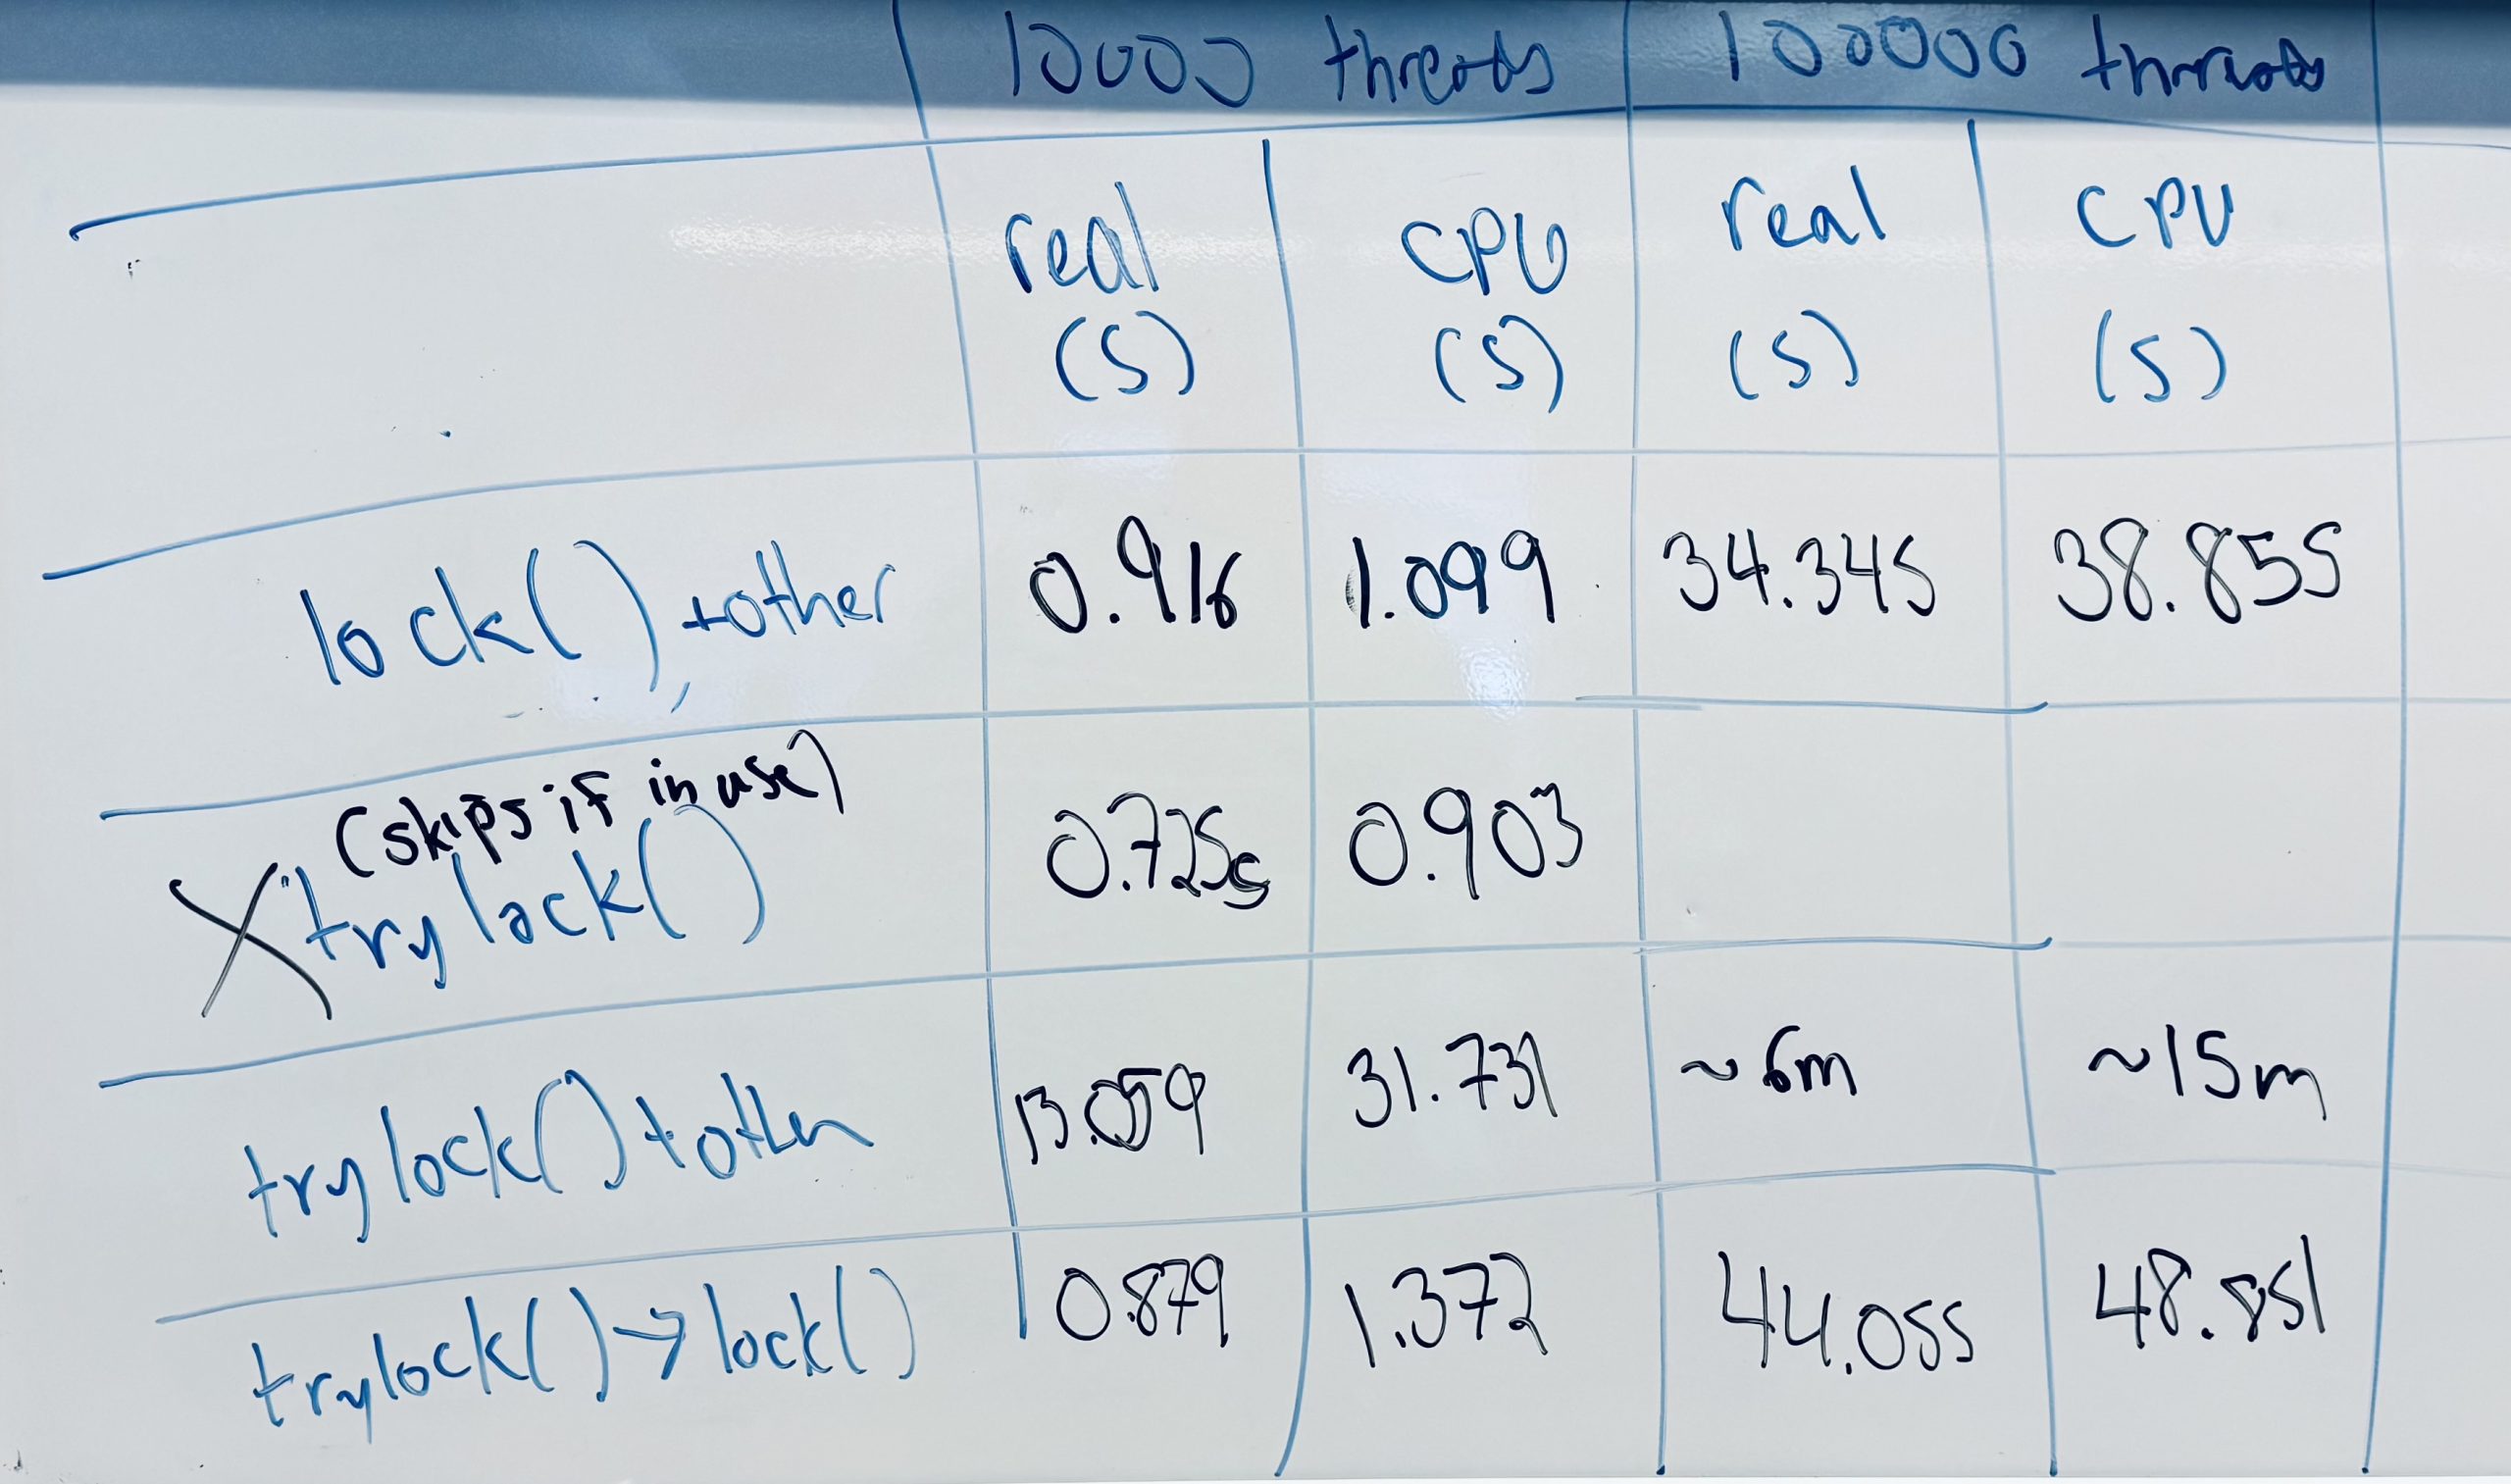 10000 threads 100000 threads
real CPU real CPU
(s) (s) (s) (s)
lock() +other 0.916 1.099 34.345 38.855
(skips if in use)
X trylock() 0.725s 0.903
trylock() + other 13.059 31.731 ~6m ~15m
trylock() → lock() 0.879 1.372 44.055 48.851